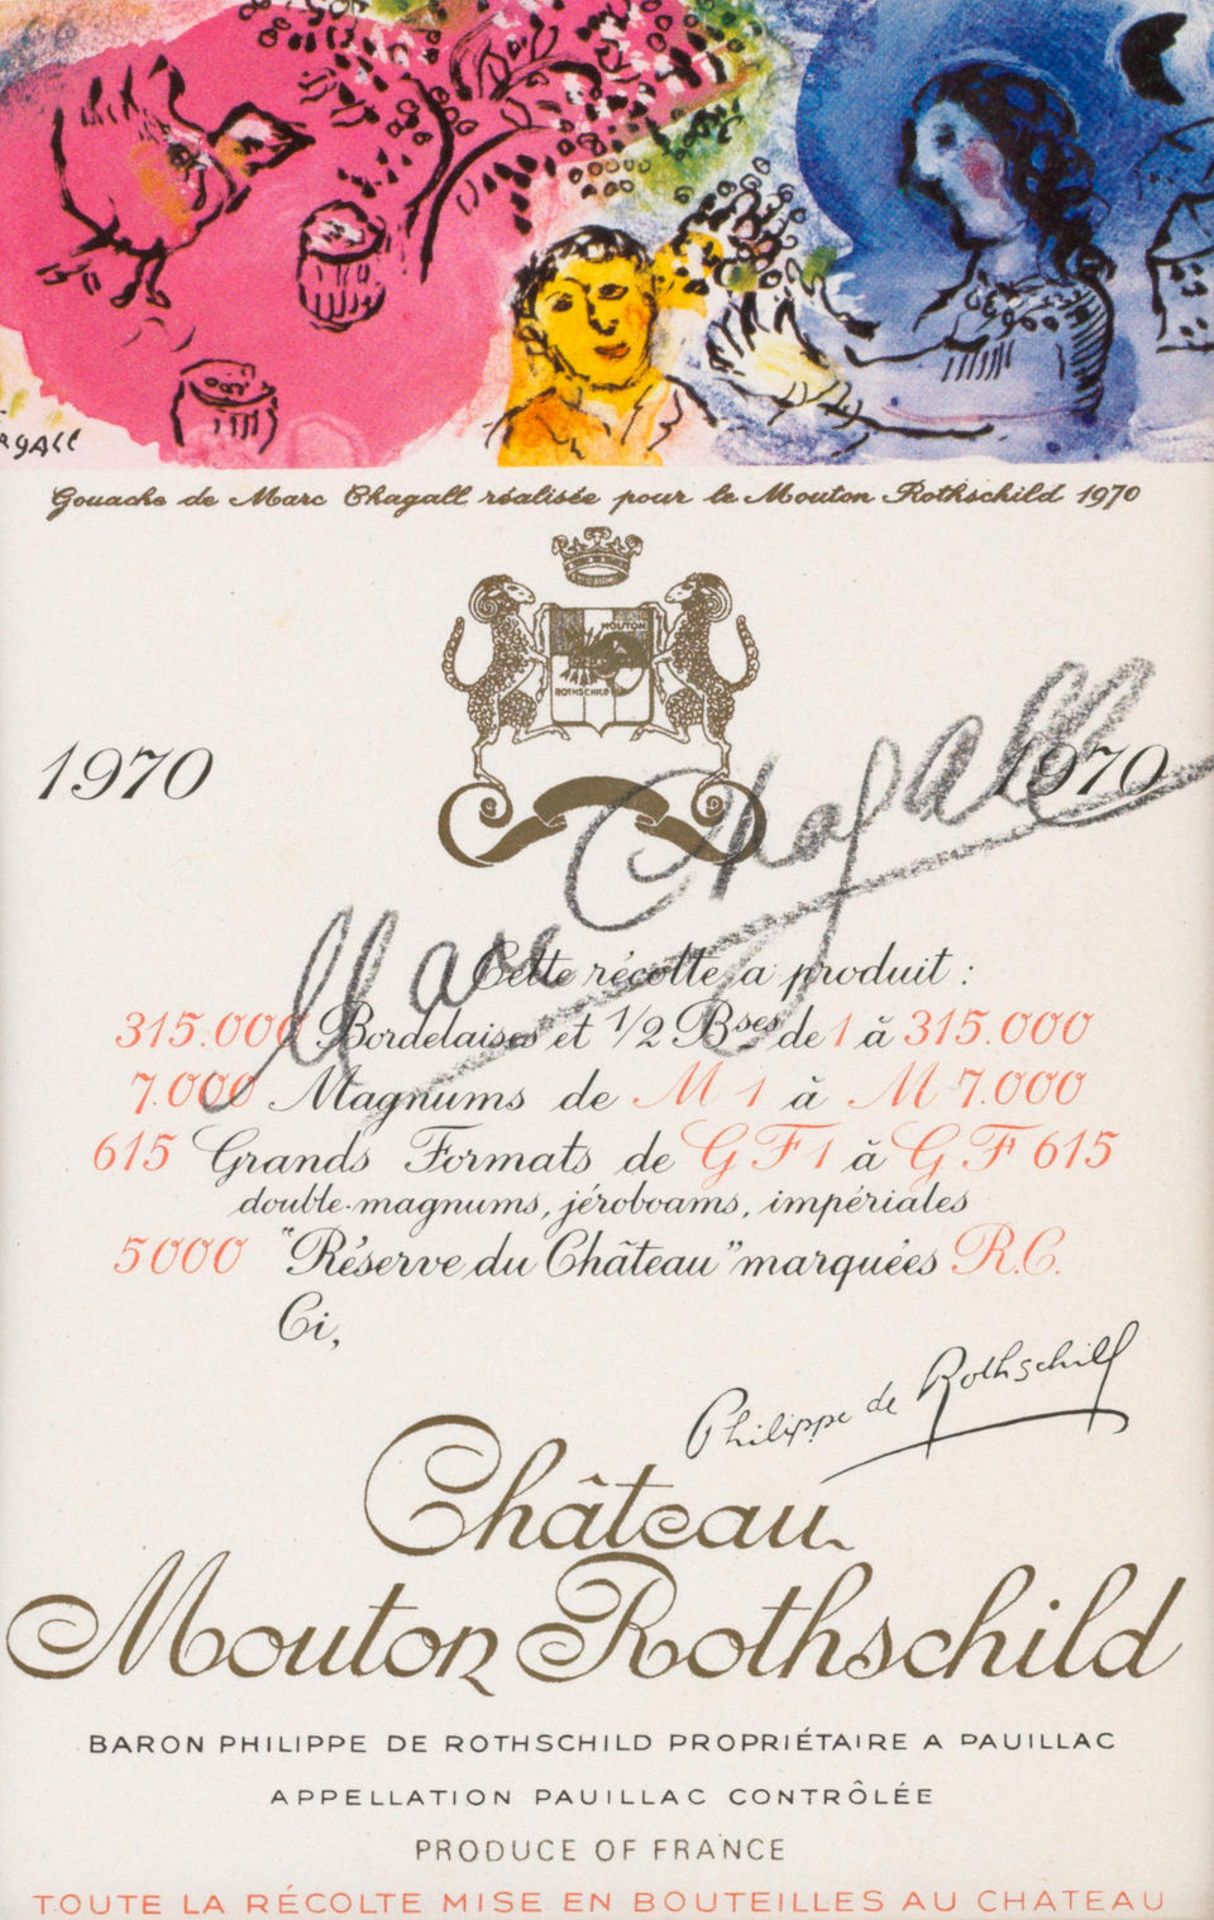 agall
Gouache de Marc Chagall réalisée pour le Mouton Rothschild 1970
MOUTON
ROTHSCHILD
1970
1970
Marc Chagall
Cette récolte a produit :
315.000 Bordelaises et 1/2 Bses de 1 à 315.000
7.000 Magnums de M 1 à M 7.000
615 Grands Formats de G F 1 à G F 615
double-magnums, jéroboams, impériales
5000 "Réserve du Château" marquées R.C.
Ci,
Philippe de Rothschild
Château
Mouton Rothschild
BARON PHILIPPE DE ROTHSCHILD PROPRIÉTAIRE A PAUILLAC
APPELLATION PAUILLAC CONTRÔLÉE
PRODUCE OF FRANCE
TOUTE LA RÉCOLTE MISE EN BOUTEILLES AU CHATEAU